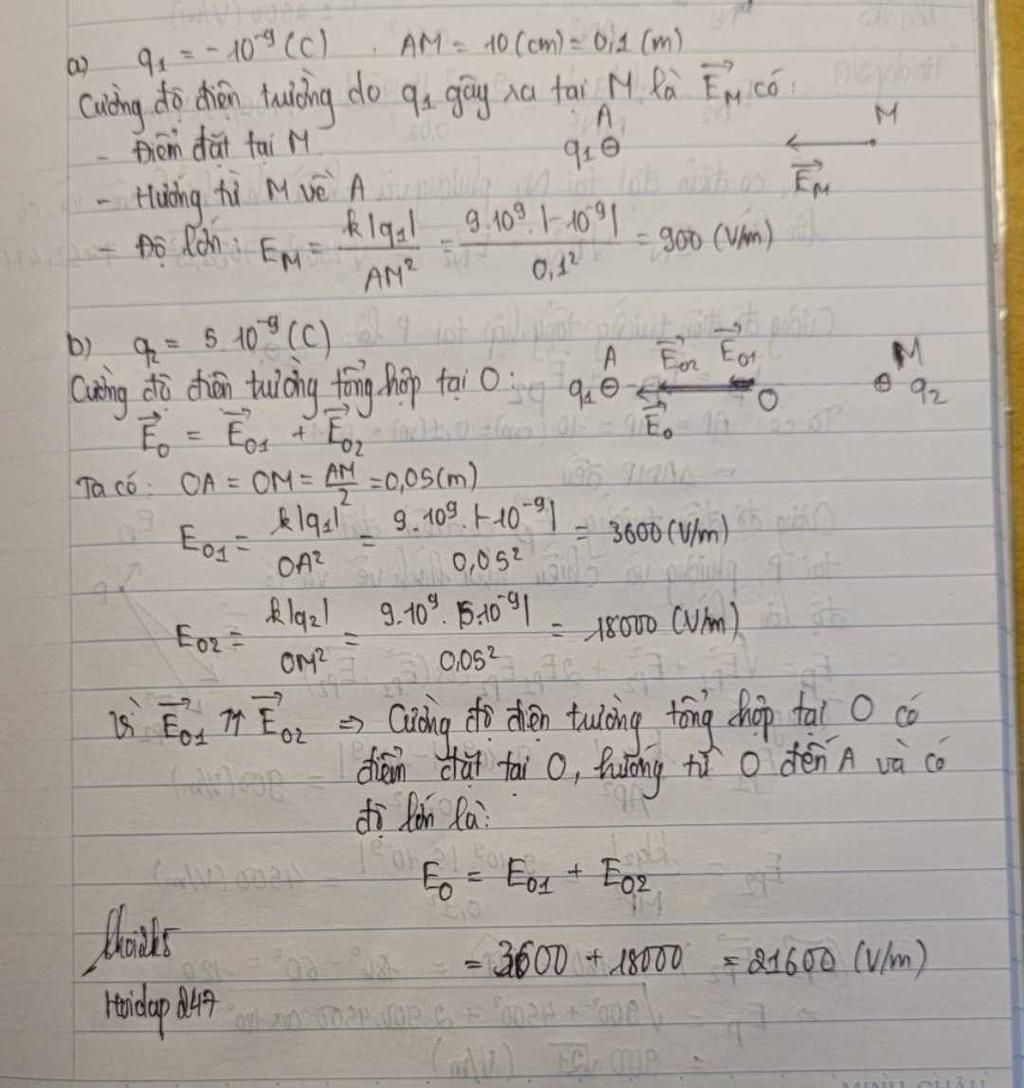 a) q₁ = - 10⁻⁹ (C) . AM = 10 (cm) = 0,1 (m)
Cường độ điện trường do q₁ gây ra tại M là E⃗_M có:
- Điểm đặt tại M
A
q₁ ⊖
M
E⃗_M
- Hướng từ M về A
- Độ lớn: E_M = k|q₁| / AM² = 9.10⁹.|-10⁻⁹| / 0,1² = 900 (V/m)
b) q₂ = 5.10⁻⁹ (C)
Cường độ điện trường tổng hợp tại O:
A E⃗₀₂ E⃗₀₁ M
q₁ ⊖ O ⊖ q₂
E⃗₀
E⃗₀ = E⃗₀₁ + E⃗₀₂
Ta có: OA = OM = AM/2 = 0,05 (m)
E₀₁ = k|q₁| / OA² = 9.10⁹.|-10⁻⁹| / 0,05² = 3600 (V/m)
E₀₂ = k|q₂| / OM² = 9.10⁹.|5.10⁻⁹| / 0,05² = 18000 (V/m)
Vì E⃗₀₁ ⇈ E⃗₀₂ ⇒ Cường độ điện trường tổng hợp tại O có
điểm đặt tại O, hướng từ O đến A và có
độ lớn là:
E₀ = E₀₁ + E₀₂
= 3600 + 18000 = 21600 (V/m)
Hoidap247